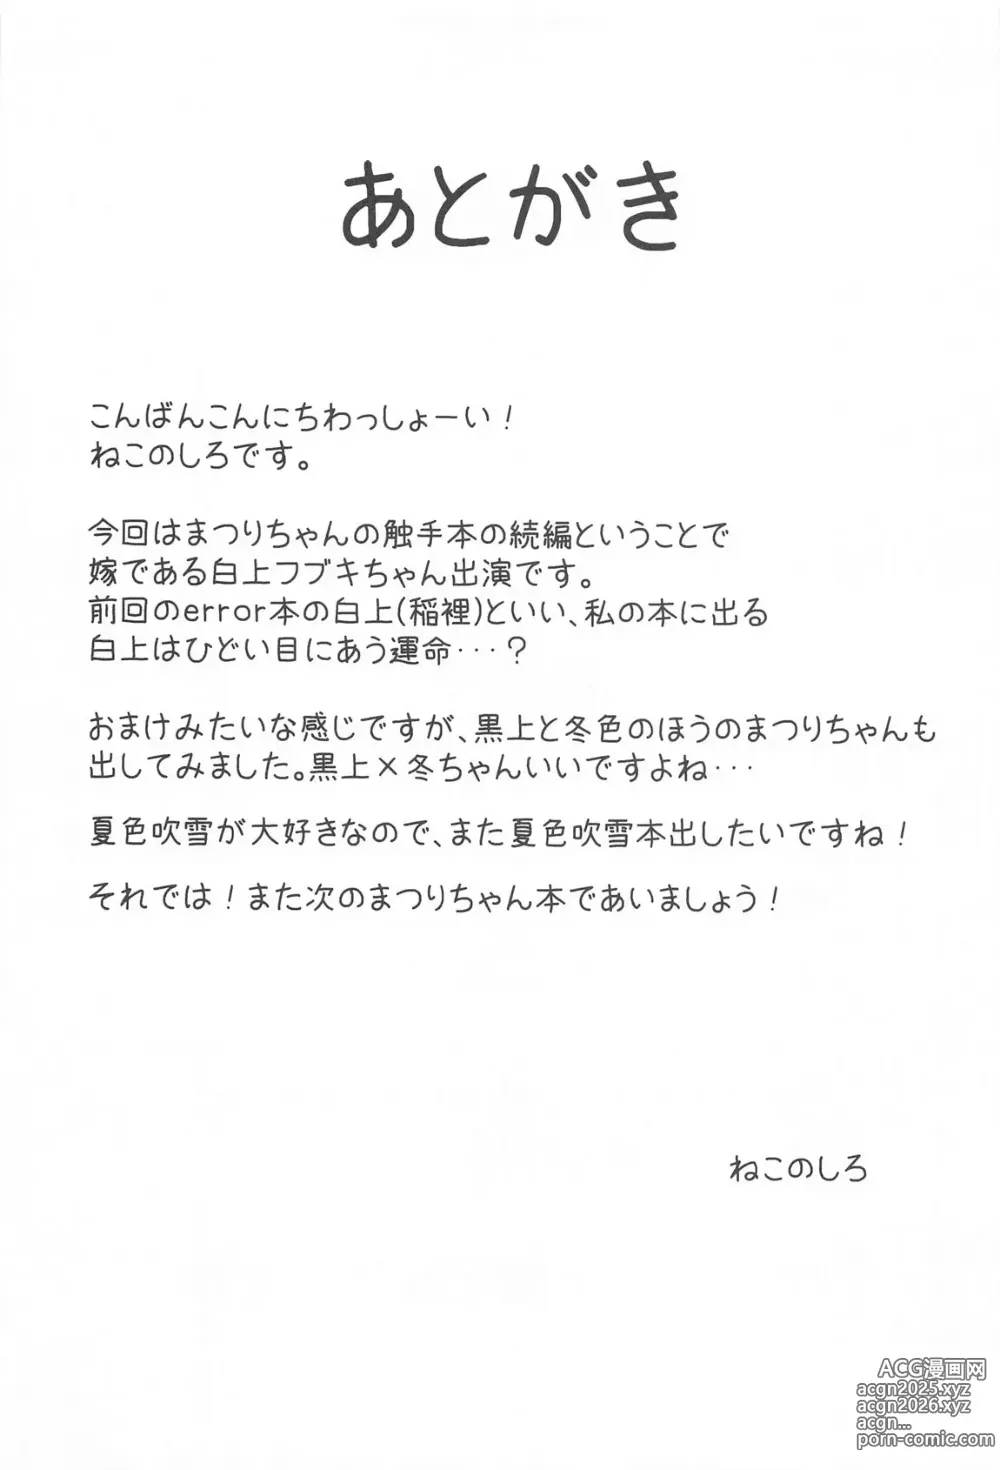 あとがき
こんばんこんにちわっしょーい！
ねこのしろです。
今回はまつりちゃんの触手本の続編ということで
嫁である白上フブキちゃん出演です。
前回のerror本の白上(稲裡)といい、私の本に出る
白上はひどい目にあう運命･･･？
おまけみたいな感じですが、黒上と冬色のほうのまつりちゃんも
出してみました。黒上×冬ちゃんいいですよね･･･
夏色吹雪が大好きなので、また夏色吹雪本出したいですね！
それでは！また次のまつりちゃん本であいましょう！
ねこのしろ
ACG漫画网
acgn2025.xyz
acgn2026.xyz
acgn...
porn-comic.com